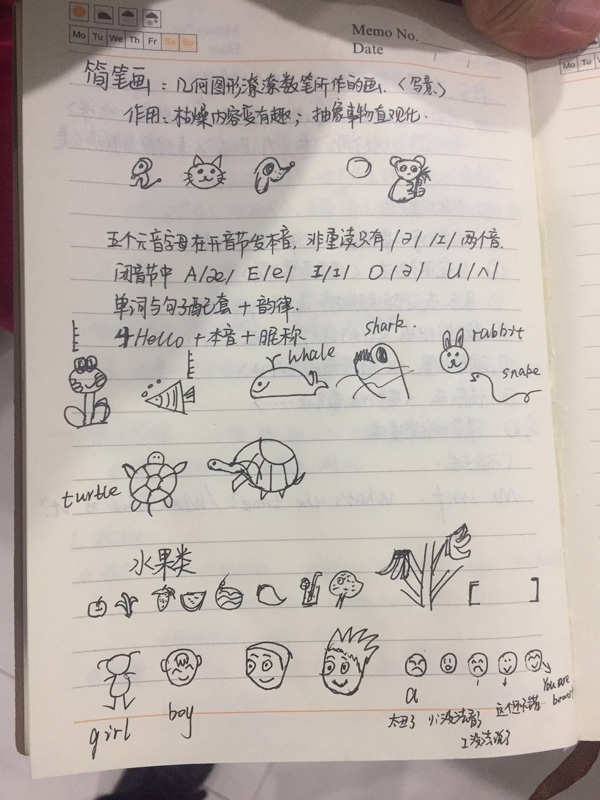 Memo No.
Mo Tu We Th Fr Sa Su
Date
简笔画：几何图形潦潦数笔所作的画.（写意）
作用：枯燥内容变有趣；抽象事物直观化.
五个元音字母在开音节发本音，非重读只有 /ə/ /ɪ/ 两个音.
闭音节中 A/æ/ E/e/ I/ɪ/ O/ə/ U/ʌ/
单词与句子配套 + 韵律.
Hello + 本音 + 昵称
shark.
whale
rabbit
snape
turtle
水果类
[ ]
You are
girl
boy
a
太丑了
没法看了
这个还不错
没法说了